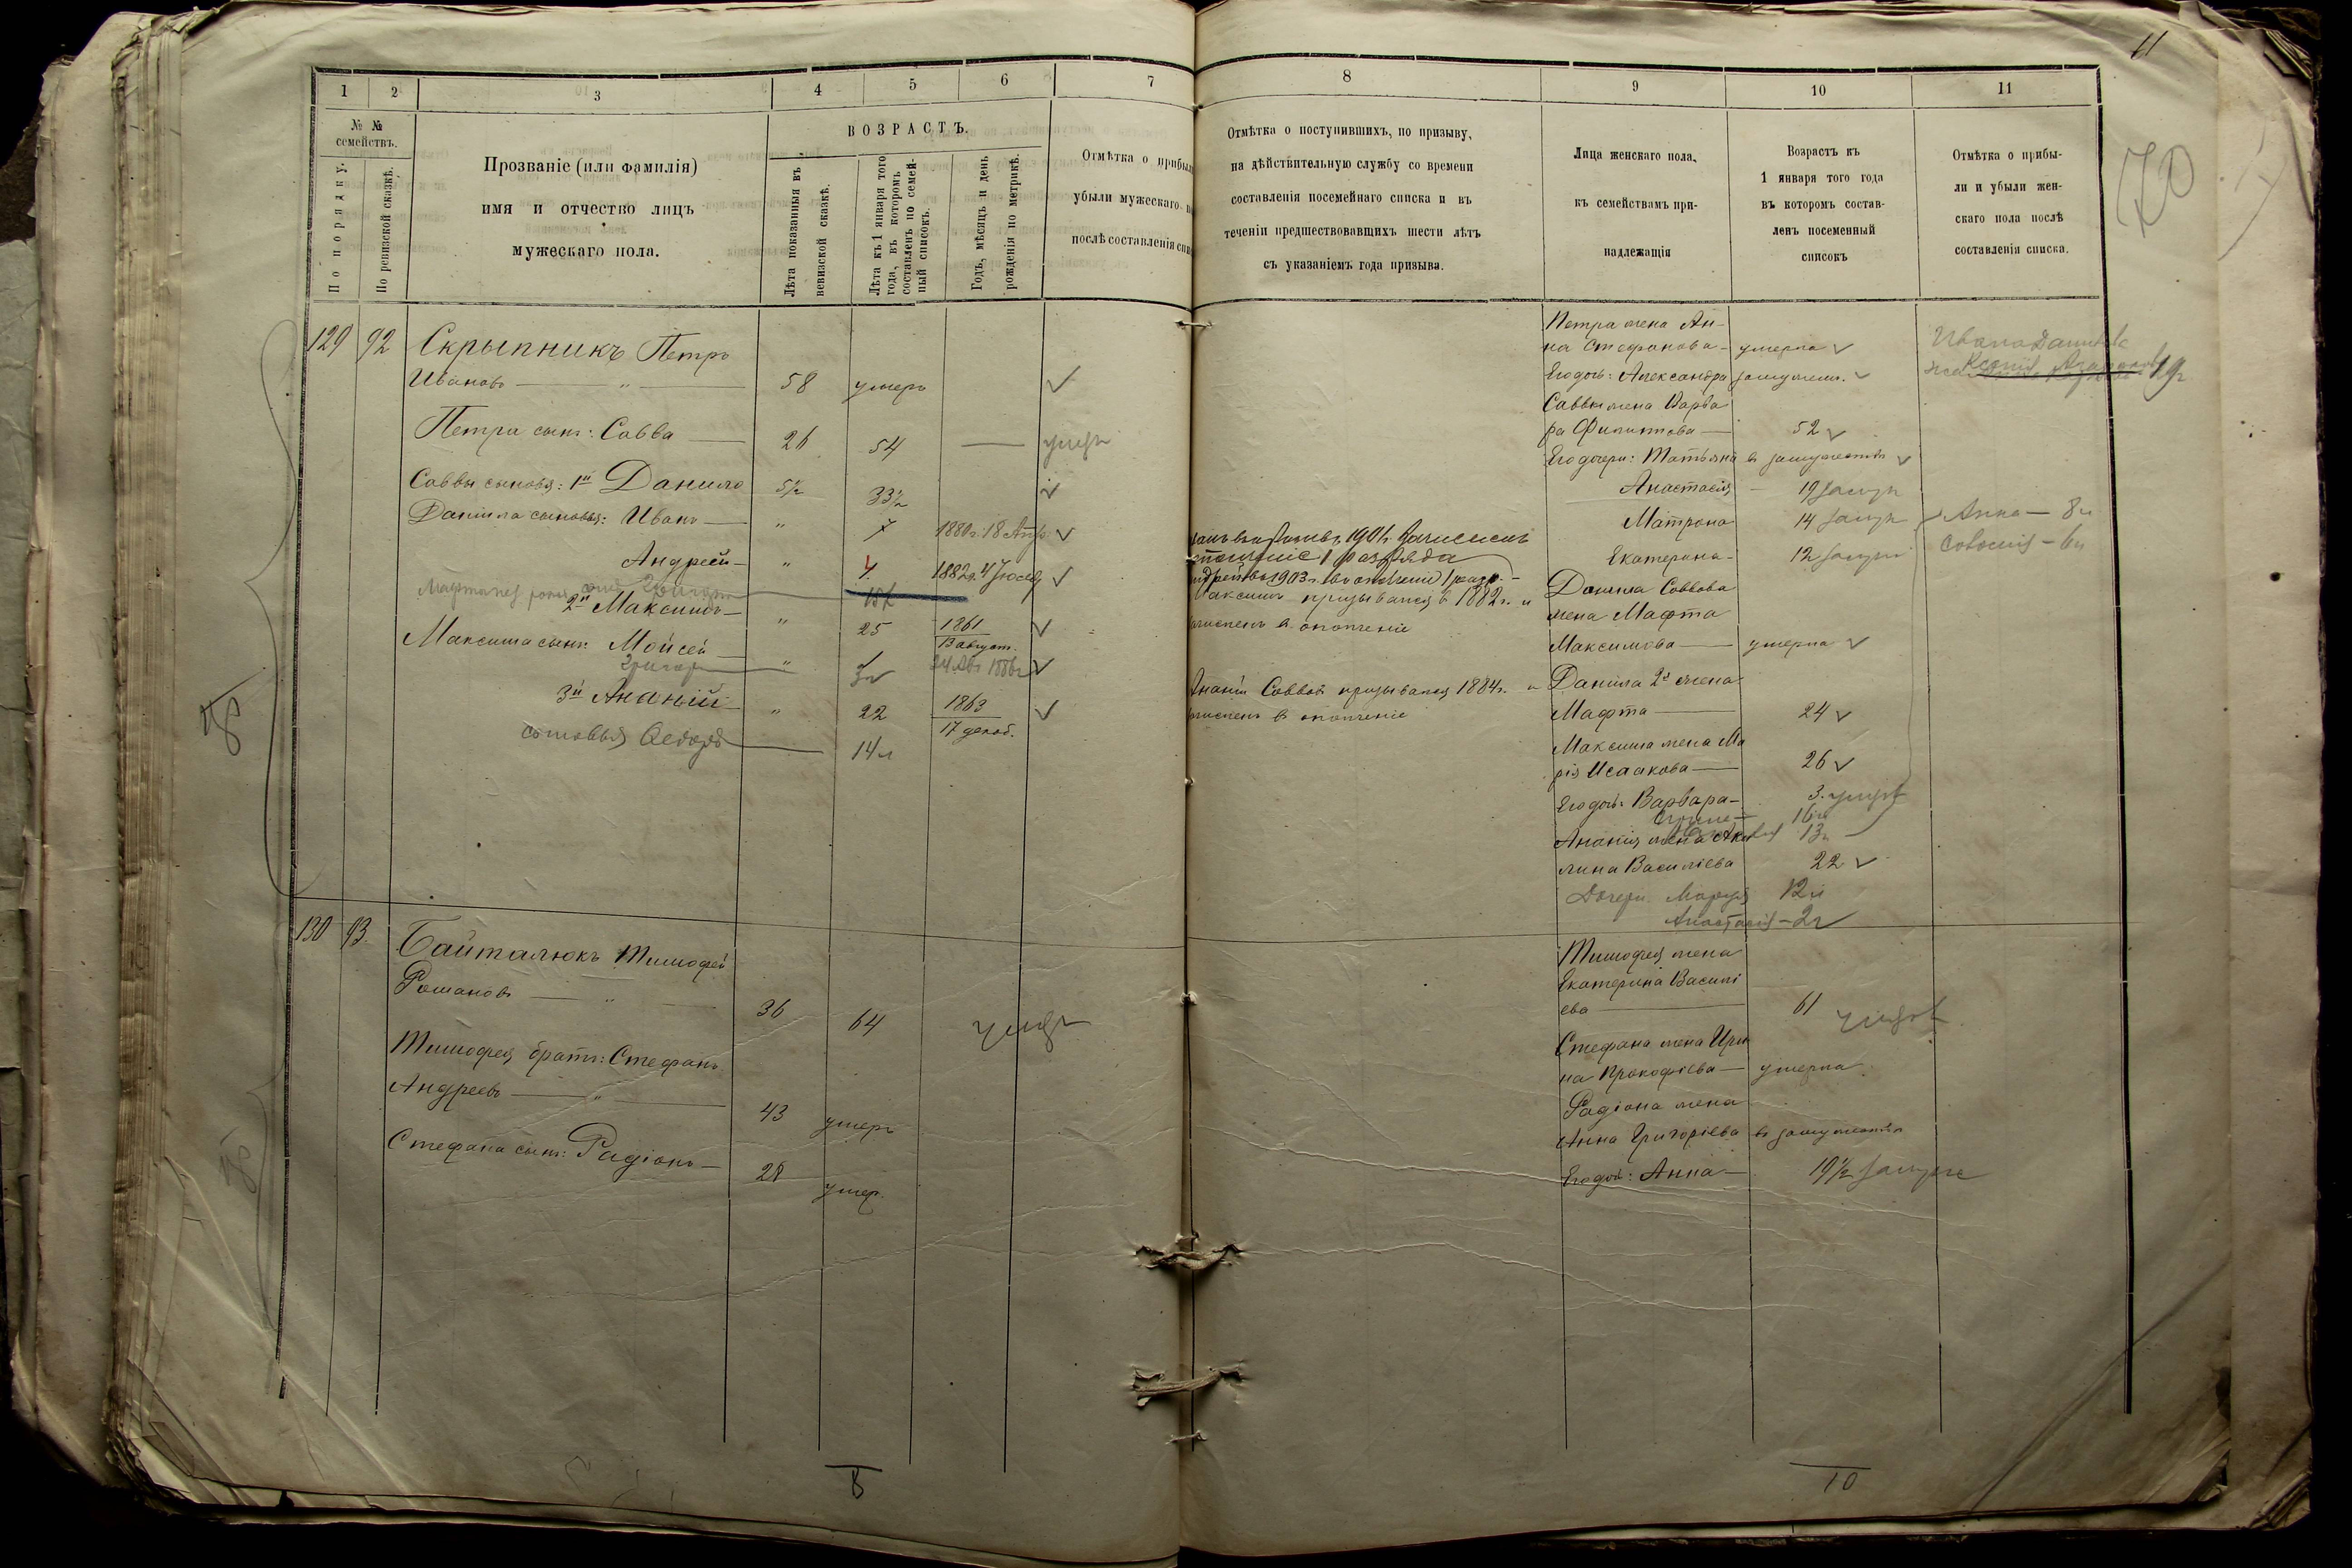 11
70
1
2
3
4
5
6
7
№ №
семействъ.
По порядку.
По ревизской сказкѣ.
Прозваніе (или фамилія)
имя и отчество лицъ
мужескаго пола.
ВОЗРАСТЪ.
Лѣта показанныя въ
ревизской сказкѣ.
Лѣта къ 1 января того
года, въ которомъ
составленъ по семей-
ный списокъ.
Годъ, мѣсяцъ и день
рожденія по метрикѣ.
Отмѣтка о прибыл
убыли мужескаго
послѣ составленія спи
129 92 Скрыпникъ Петръ
Ивановъ — „ — 58 умеръ
Петра сынъ: Савва — 26 54 — умеръ
Саввы сыновья: 1й Данило 5½ 33½
Данила сыновья: Иванъ — „ 7 1880 г. 18 Апр.
Андрей — „ 4 1882 г. 4
Григор
2й Максимъ — „ 25 1861
13 август.
Максима сынъ: Мойсей „
Григор 24 Авг 1886
3й Ананій „ 22 1863
17 декаб.
сыновья Ѳедоръ 14 л
130 93. Байталюкъ Тимофей
Романовъ — „ — 36 64 умеръ
Тимофея братъ: Стефанъ
Андреевъ — „ — 43 умеръ
Стефана сынъ: Радіонъ — 28 умер.
8
8
9
10
11
Отмѣтка о поступившихъ, по призыву,
на дѣйствительную службу со времени
составленія посемейнаго списка и въ
теченіи предшествовавщихъ шести лѣтъ
съ указаніемъ года призыва.
Лица женскаго пола,
къ семействамъ при-
надлежащія
Возрастъ къ
1 января того года
въ которомъ состав-
ленъ посеменный
списокъ
Отмѣтка о прибы-
ли и убыли жен-
скаго пола послѣ
составленія списка.
Петра жена Ан-
на Стефанова — умерла
Его дочь: Александра замужем.
Ивана Данилова
Ксенія 19
Саввы жена Варва
ра Филиппова — 52
Его дочери: Татьяна въ замужествѣ
Анастасія — 19 замуж
Матрона 14 замуж
Анна — 8 л
Екатерина — 12 замуж
Софонія — 6 л
1901 г. зачисленъ
1 разряда
1903 г. въ ополченіе 1 разр. —
Максимъ призывался въ 1882 г. и
зачисленъ въ ополченіе
Данила Саввова
жена Марта
Максимова — умерла
Ананій Саввовъ призывался 1884 г. и
зачисленъ въ ополченіе
Данила 2я жена
Марта — 24
Максима жена Ма
рія Исаакова — 26
Его дочь: Варвара — 3. умерл
16 л
13 л
Ананія жена Аку
лина Василіева 22
Дочери Марія 12 л
Анастасія — 2 г
Тимофея жена
Екатерина Василі
ева — 61 умерл
Стефана жена Ири
на Прокофіева — умерла
Радіона жена
Анна Григоріева въ замужествѣ
Его дочь: Анна — 19½ замуже
10